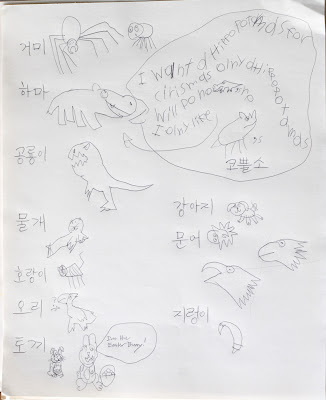 거미
하마
I want a Hipopotamas for
crismas only a Hipopotamas
Will Do no
I only like
코뿔소
공룡이
물개
강아지
문어
호랑이
오리
지렁이
토끼
I'm the
Easter Bunny!